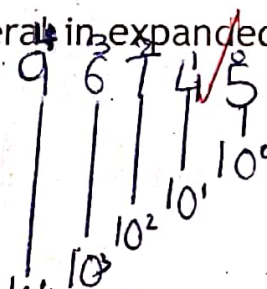 eral in expanded
4 3 2 1 0
9 6 7 4 5
10⁰
10¹
10²
10³